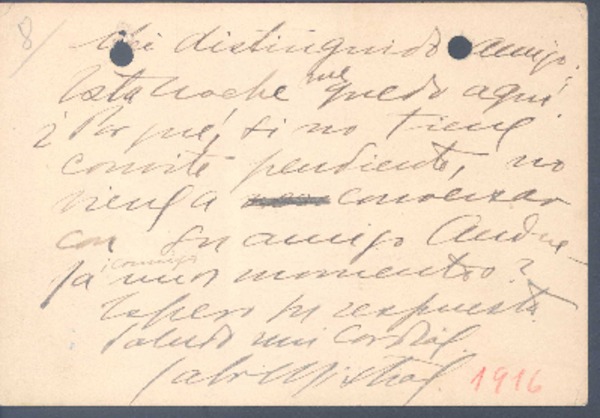 8
Mi distinguido amigo:
Esta noche me quedo aquí.
¿Por qué, si no tiene
convite pendiente, no
viene a conversar
con su amigo
conmigo
unos momentos?
Espero su respuesta
Saludo mui cordial
Gabr Mistral.
1916